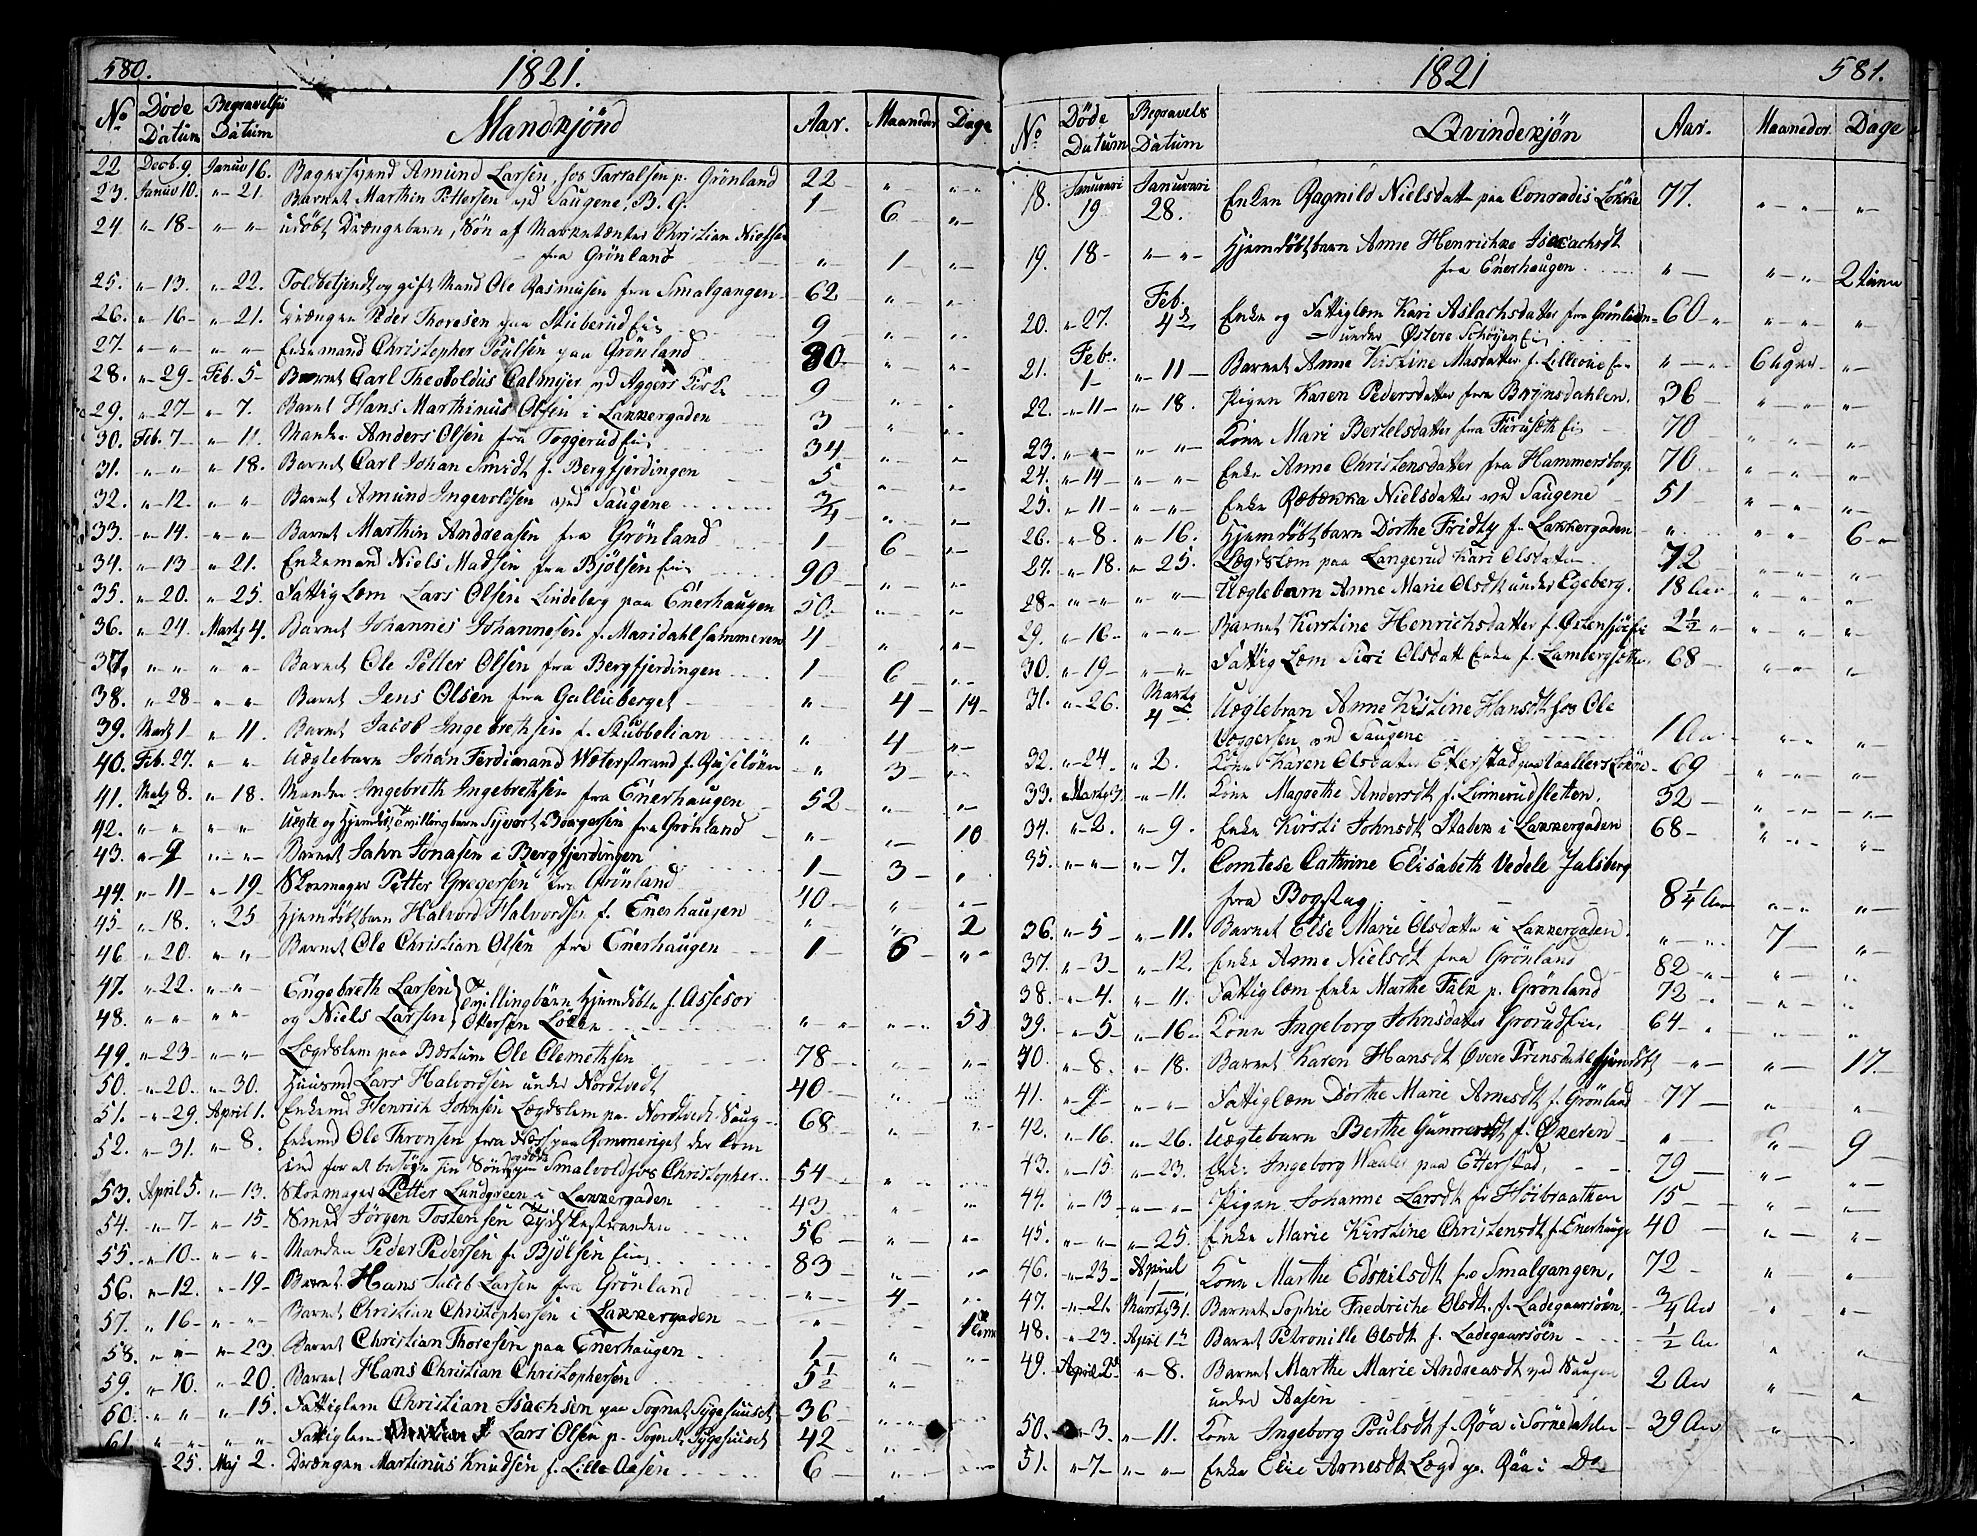 580.
1821.
No Döde Datum Begravelses Datum Mandkjönd Aar. Maaneder Dage
22 Decb. 9. Januv 16. Bagersvend Amund Larsen, hos Tarralsen p. Grönland 22 — " — " —
23. Januv 10. " — 21. Barnet Marthin Pettersen ved Saugene, B. G. 1 — 6 — " —
24 " — 18 — " — " — udöbt Drængebarn, Sön af Marketænter Christian Nielsen
fra Grönland " — 1 — " —
25. " — 13. " — 22. Toldbetjendt og gift Mand Ole Rasmusen fra Smalgangen 62 — " — " —
26. " — 16 — " — 21. Drængen Peder Thoresen paa Stuberud Eie 9 — " — " —
27. " — " — " — " — Enkemand Christopher Poulsen paa Grönland 80 — " — " —
28. " — 29 — Feb. 5 — Barnet Carl Theoboldus Calmejer ved Aggers Kirke 9 — " — " —
29. " — 27 — " — 7. Barnet Hans Marthinus Olsen i Lakkergaden 3 — " — " —
30. Feb. 7 — " — 11. Manden Anders Olsen fra Toggerud Eie 34 — " — " —
31. " — " — " 18. Barnet Carl Johan Smidt f. Bergfjerdingen 5 — " — " —
32. " — 12. " — " — Barnet Amund Ingevoldsen ved Saugene 3/4 — " — " —
33. " — 14. " — " — Barnet Marthin Andreasen fra Grönland 1 — 6 — " —
34. " — 13 " — 21. Enkemand Niels Madsen fra Bjölsen Eie 90 — " — " —
35. " — 20. " — 25. Fattig Lem Lars Olsen Lindeberg paa Enerhaugen 50. — " — " —
36. " — 24. Marty 4. Barnet Johannes Johannesen f. Maridahlshammeren 4 — " — " —
37. " — " — " — " — Barnet Ole Petter Olsen fra Bergfjerdingen 1 — 6 — " —
38. " — 28 — " — " — Barnet Jens Olsen fra Gallieberget " — 4 — 14 —
39. Marty 1 — " — 11. Barnet Jacob Ingebrethsen f. Stubbelian " 4 — " —
40. Feb. 27. " — " — Uægtebarn Johan Ferdinand Wæterstrand f. Ruselökn " 3 — " —
41. Marty 8. " — 18. Manden Ingebreth Ingebrethsen fra Enerhaugen 52 — " — " —
42. " — " — " — " — Uægte og Hjemdöbt Tvillingbarn Syvert Borgersen fra Grönland " — " — 10
43. " — 9 — " — " — Barnet Jahn Jonasen i Bergfjerdingen 1 — 3 — " —
44. " — 11 — " — 19 — Skomager Petter Gregersen fra Grönland 40 — " — " —
45 " — 18. " 25 Hjemdöbtbarn Halvord Halvordsen f. Enerhaugen " — " — 2
46 " — 20. " — " — Barnet Ole Christian Olsen fra Enerhaugen 1 — 6 — " —
47. " — 22. " — " — Engebreth Larsen } Tvillingbörn Hjemdöbte f. Assesor
48. " — " — " — " — og Niels Larsen } Ottersen Lökke " — " — 5
49. " — 23 — " — " — Lægdslem paa Bæstum Ole Clemetsen 78 — " — " —
50. " — 20. " — 30. Huusmd Lars Halvordsen under Nordtvedt 40 — "
51. " — 29. April 1. Enkemd Henrich Johnsen Lægdslem paa Nordtvedt Saug 68 — " — " —
52. " — 31. " — 8. Enkemd Ole Thronsen fra Næss paa Romeriget der kom
ind for at besöge sin Sön paa Smalvold hos Christopher 54 — " — " —
53. April 5. " — 13. Skomager Petter Lundgreen i Lakkergaden 43 — " — " —
54. " — 7 — " — 15 — Smed Jörgen Tostensen Tydskestranden 56 — " — " —
55. " — 10 — " — " — Manden Peder Pedersen f. Bjölsen Eie 83 — " — " —
56. " — 12. " — 19 — Barnet Hans Jacob Larsen fra Grönland " — 4 — " —
57. " 16 — " — " — Barnet Christian Christophersen i Lakkergaden " — 1
58. " — " — " — 23. Barnet Christian Thoresen paa Enerhaugen 1 — " — " —
59. " — 10. " — 20. Barnet Hans Christian Christophersen 5 1/2 — " —
60. " — " — " 15. Fattiglem Christian Isachsen paa Sognets Sygehuuset 36 — " —
61. " — " — " — " Fattiglem Lars Olsen p. Sogn. Sygehuuset 42 — " —
25. Maj 2. Drængen Martinus Knudsen f. Lille Aasen 6 — " — " —
1821
581.
No Döde Datum Begravels Datum Qvindekjön Aar. Maaneder Dage
18. Januvari 19 Januvari 28. Enken Ragnild Nielsdatter paa Conradis Lökke 77. " — " — " —
19. 18 — " — " — Hjemdöbtbarn Anne Henrichke Isacachsdt
fra Enerhaugen " — " — 2 timer
20. " — 27. Feb. 4de Enke og Fattiglem Kari Aslachsdatter fra Grönlien 60 — " — " — " —
under Östere Schöyen Eie
21. Feb. 1 — " — 11 — Barnet Anne Kirstine Masdatter f. Lilleoie Eie " — " — 6 uger — " —
22. " — 11 — " — 18. Pigen Karen Pedersdatter fra Brynsdahlen. 36 — " — " —
23. " — " — " — " — Kone Mari Bertelsdatter fra Furuseth Eie 70 — " — " —
24. " — 14 — " — " — Enke Anne Christensdatter fra Hammersborg 70. — " — " —
25. " — 11 — " — " — Enke Ræbekka Nielsdatter ved Saugene 51 — " — " —
26. " — 8. " — 16. Hjemdöbtbarn Dorthe Fridly f. Lakkergaden " — " — 6 —
27. " — 18. " 25. Lægdslem paa Langerud Kari Olsdatter 72 — " — " —
28 — " — " — " — " — Uæglebarn Anne Marie Olsdt under Egeberg. 18 Aar — " — " —
29. " — 16 — " — " — Barnet Kirstine Henrichsdatter f. Östensjöe Eie 2 1/2 " — " — " —
30. " — 19 — " — " — Fattig Lem Siri Olsdatt Enke f. Lambergsæter 68 — " — " —
31. " — 26. Marty 4 — Uæglebran Anne Kistine Hansdt hos Ole
ved Saugene 1 Aar — " — " —
32. " — 24 — " 2. Kone Karen Olsdatter Etterstad paa Vaallers Lökn 69 — " — " —
33. Marty 3. " — 11. Kone Magrethe Andersdt f. Linnerudsletten. 32 — " — " —
34. " — 2. " — 9. Enke Kirsti Johnsdt Staben i Lakkergaden 68 — " — " —
35. " — " — " — 7. Comtese Cathrine Elisabeth Vedele Jalsberg
fra Bogstag 8 1/4 Aar — " — " —
36. " — 5 — " — 11. Barnet Else Marie Olsdatter i Lakkergaden " — 7 — " —
37. " — 3 — " — 12. Enke Anne Nielsdt fra Grönland 82 — " — " —
38. " — 4. " — 11. Fattiglem Enke Marthe Falk p. Grönland 72 — " — " —
39. " — 5 — " — 16 — Kone Ingeborg Johnsdatter Grorud Eie 64 — " — " —
40. " — 8. " — 18. Barnet Karen Hansdt Övere Prinsdahl Hjemdöbt " — " — 17. —
41. " — 9 — " — " — Fattiglem Dorthe Marie Arnesdt f. Grönland 77 — " — " —
42. " — 16. " — 26. Uægtebarn Berthe Gunnersdt f. Økeren " — " — 9 —
43. " — 15. " — 23. Enke Ingeborg Waaler paa Etterstad, 79 — " — " —
44. " — 13 — " — " — Pigen Johanne Larsdt fr Höibraathen 15 — " — " —
45. " — " — " — 25. Enke Marie Kirstine Christensdt f. Enerhauge 40 — " — " —
46. " — 23 — Apriel 1 — Kone Marthe Edskilsdt fra Smalgangen. 72 — " — " —
47. " — 21. Marty 31. Barnet Sophie Fredriche Olsdt. f. Ladegaarsöen 3/4 Aar " "
48. " — 23. April 1ste Barnet Petronille Olsdt f. Ladegaarsöen 1/2 Aar " "
49. April 2d " — 8. Barnet Marthe Marie Andreasdt ved Saugen
under Aasen 2 Aar " "
50. " — 3. " — 11. Kone Ingeborg Poulsdt f. Röa i Sörkedahlen 39 Aar " —
51. " — 7 — " — " — Enke Elie Arnesdt Lægd p. Röa i Do